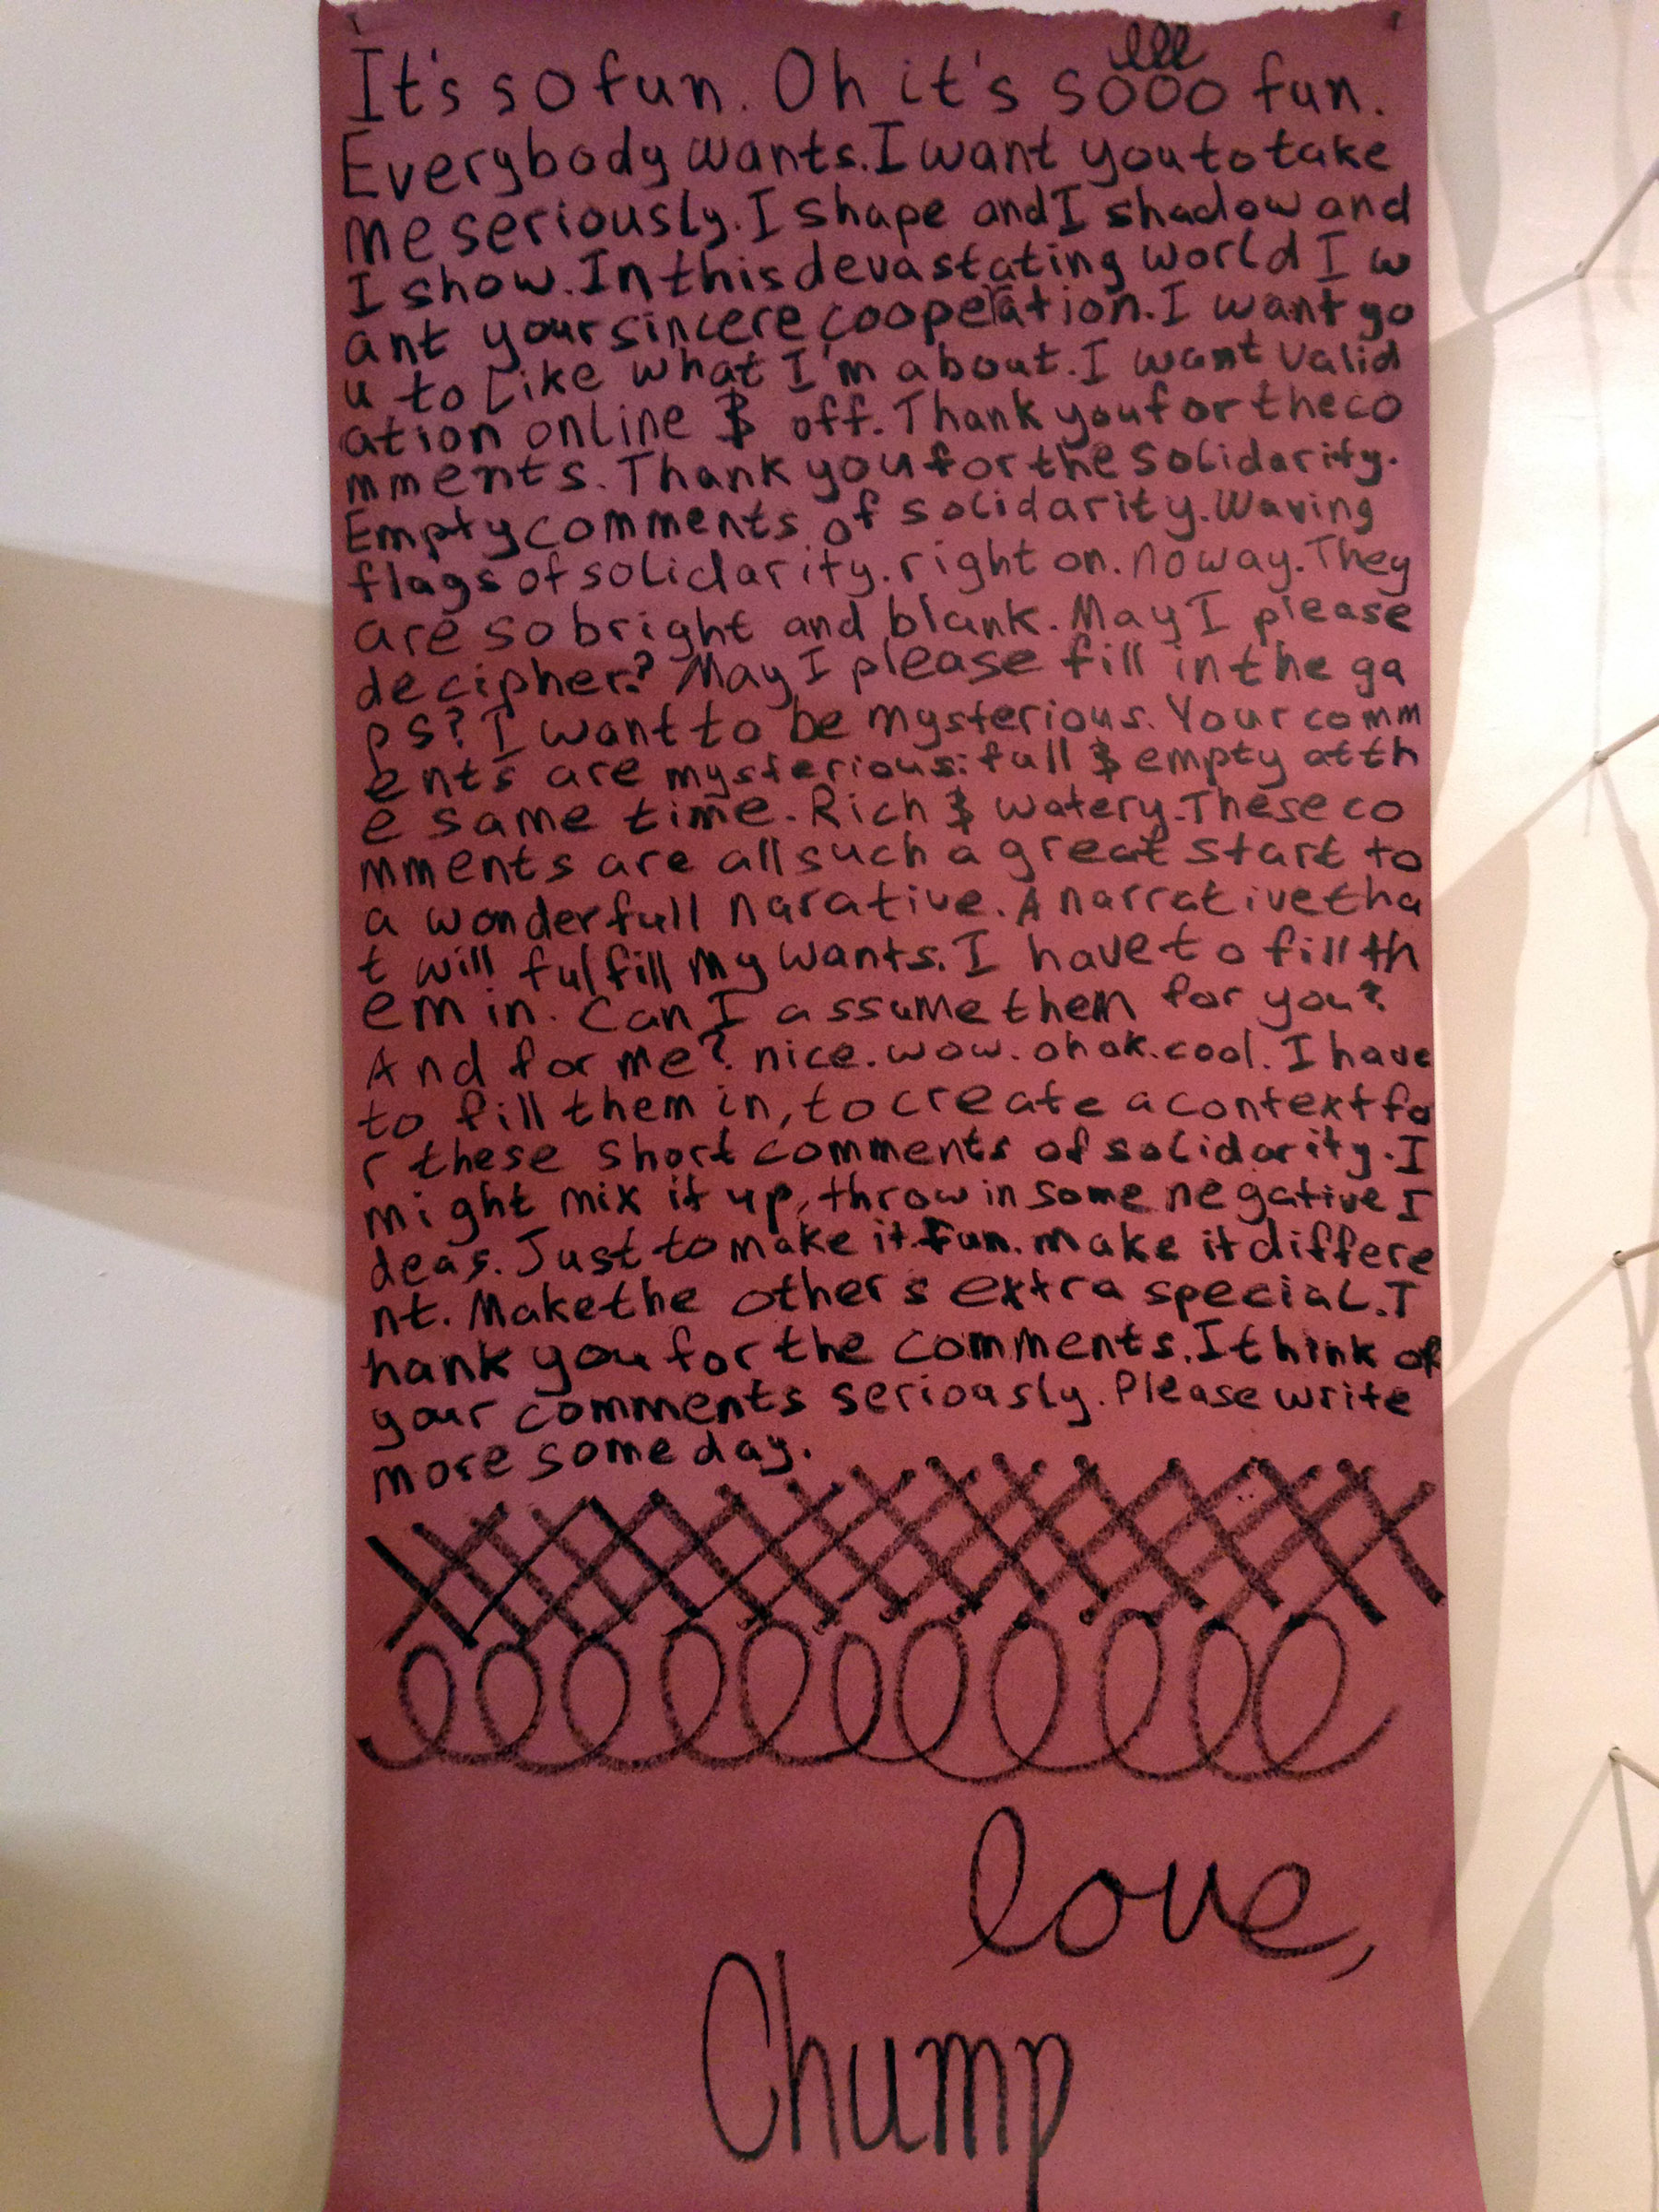 It's so fun. Oh it's sooo fun.
Everybody wants. I want you to take
me seriously. I shape and I shadow and
I show. In this devastating world I w
ant your sincere cooperation. I want yo
u to Like what I'm about. I want valid
ation online & off. Thank you for the co
mments. Thank you for the solidarity.
Empty comments of solidarity. Waving
flags of solidarity. right on. no way. They
are so bright and blank. May I please
decipher? May I please fill in the ga
ps? I want to be mysterious. Your comm
ents are mysterious: full & empty at th
e same time. Rich & watery. These co
mments are all such a great start to
a wonderfull narative. A narrative tha
t will fulfill my wants. I have to fill th
em in. Can I assume them for you?
And for me? nice. wow. oh ok. cool. I have
to fill them in, to create a context fo
r these short comments of solidarity. I
might mix it up, throw in some negative I
deas. Just to make it fun. make it differe
nt. Make the others extra special. T
hank you for the comments. I think of
your comments seriously. Please write
more some day.
love,
Chump